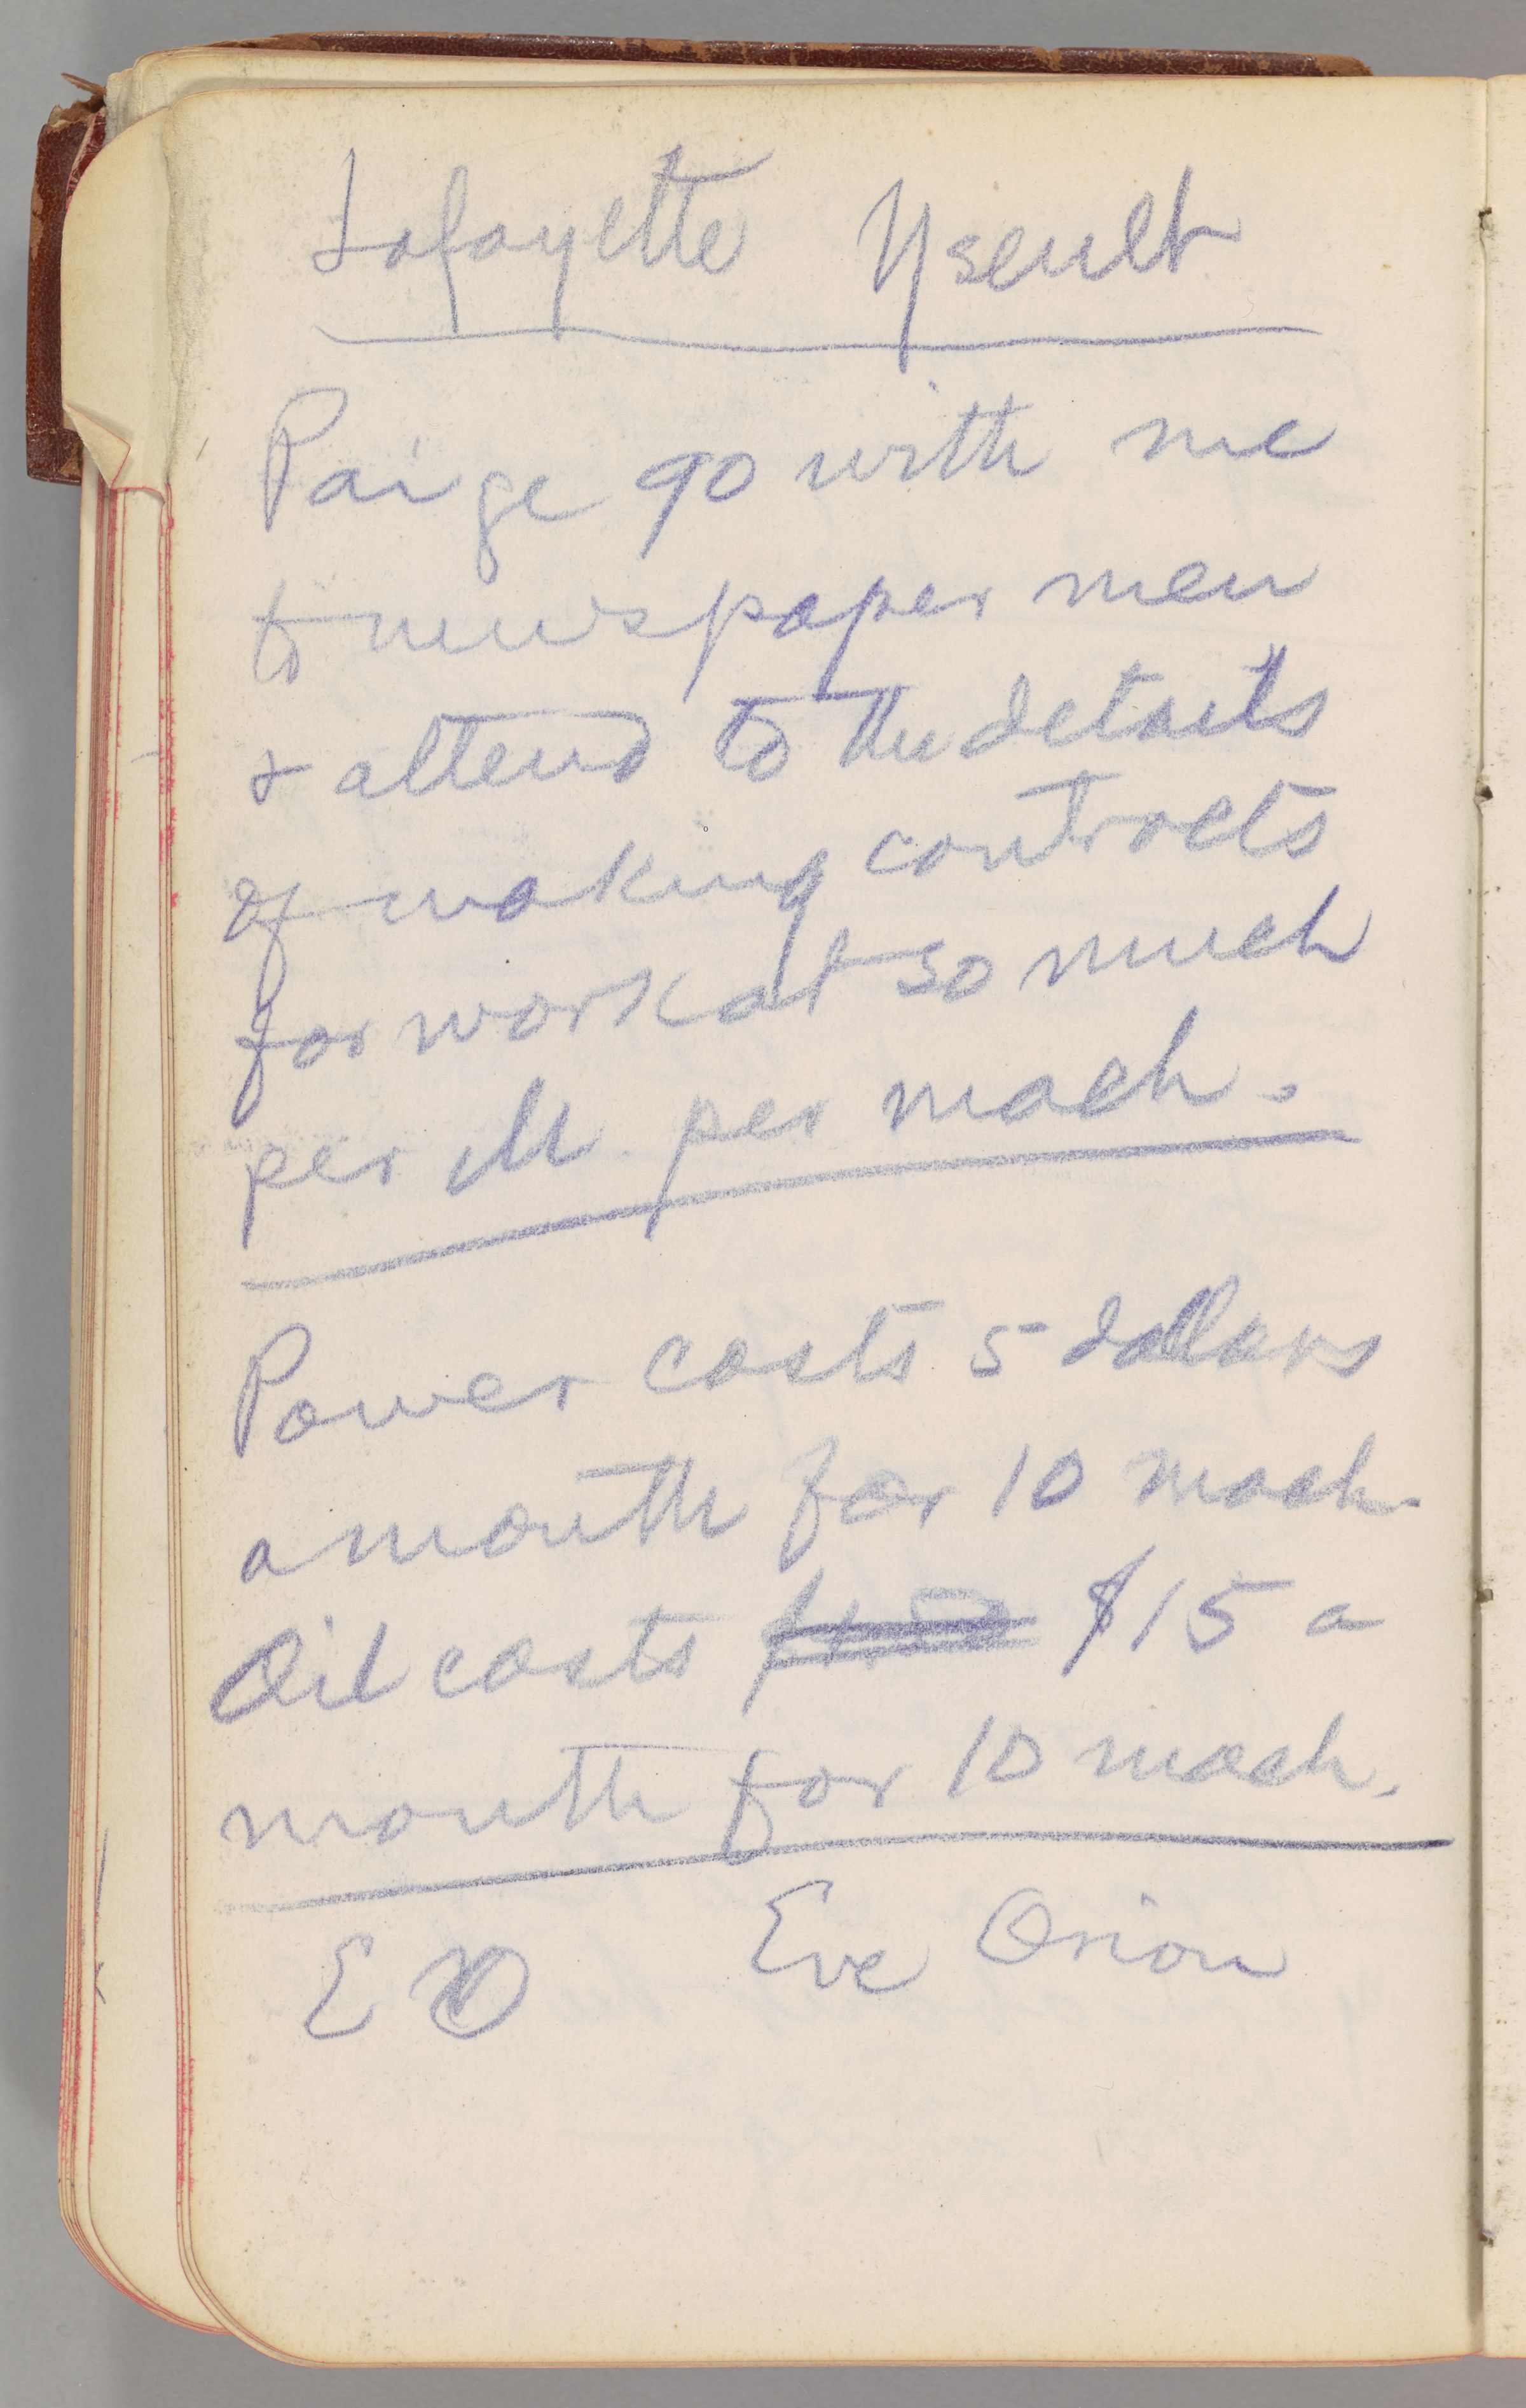 Lafayette Yseult
Paige go with me
to newspaper men
& attend to the details
of making contracts
for work at so much
per M. per mach.
Power costs 5 dollars
a month for 10 mach.
Oil costs $15 a
month for 10 mach.
E O Eve Orion